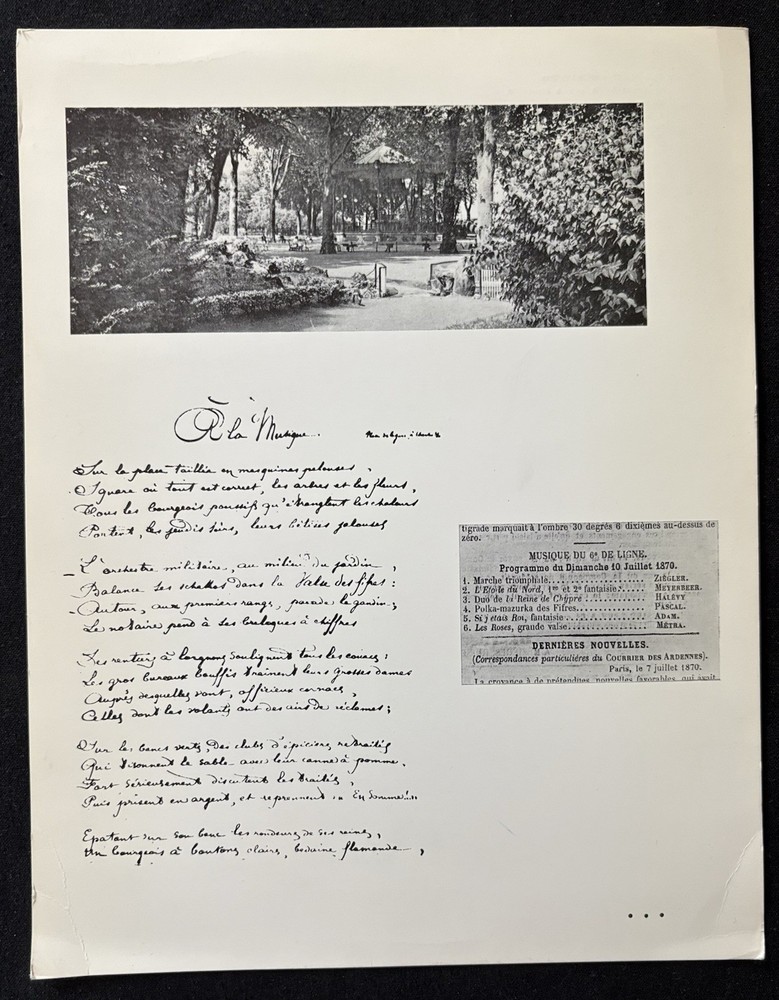 À la Musique..
Sur la place taillée en mesquines pelouses,
Square où tout est correct, les arbres et les fleurs,
Tous les bourgeois poussifs qu'étranglent les chaleurs
Portent, les jeudis soirs, leurs bêtises jalouses
_ L'orchestre militaire, au milieu du jardin,
Balance ses schakos dans la Valse des fifres:
_ Autour, aux premiers rangs, parade le gandin;
Le notaire pend à ses breloques à chiffres
Des rentiers à lorgnons soulignent tous les couacs:
Les gros bureaux bouffis traînent leurs grosses dames
Auprès desquelles vont, officieux cornacs,
Celles dont les volants ont des airs de réclames;
Sur les bancs verts, des clubs d'épiciers retraités
Qui tisonnent le sable avec leur canne à pomme,
Fort sérieusement discutent les traités,
Puis prisent en argent, et reprennent: "En somme!..."
Epatant sur son banc les rondeurs de ses reins,
Un bourgeois à boutons clairs, bedaine flamande,
tigrade marquait à l'ombre 30 degrés 6 dixièmes au-dessus de
zéro.
MUSIQUE DU 6e DE LIGNE.
Programme du Dimanche 10 Juillet 1870.
1. Marche triomphale........ ZIÉGLER.
2. L'Etoile du Nord, 1re et 2e fantaisie...... MEYERBEER.
3. Duo de la Reine de Chypre........ HALÉVY
4. Polka-mazurka des Fifres........ PASCAL.
5. Si j'étais Roi, fantaisie........ ADAM.
6. Les Roses, grande valse........ MÉTRA.
DERNIÈRES NOUVELLES.
(Correspondances particulières du COURRIER DES ARDENNES).
Paris, le 7 juillet 1870.
La croyance à de prétendues nouvelles favorables, qui avait